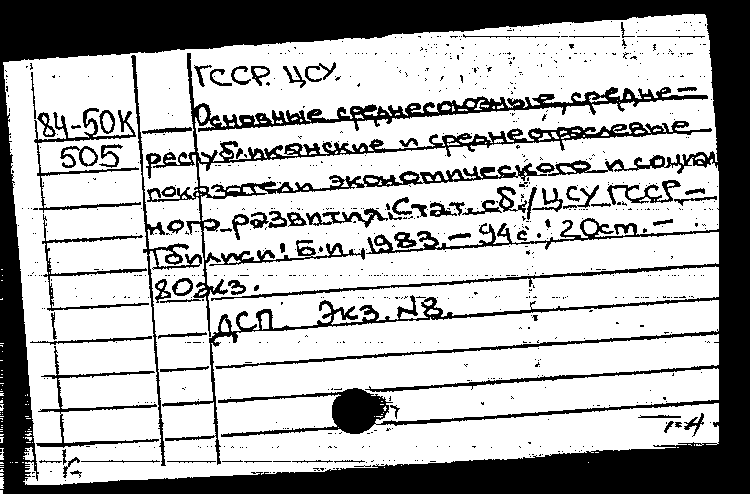 ГССР. ЦСУ.
84-50К
505
Основные среднесоюзные, средне-
республиканские и среднеотраслевые
показатели экономического и социаль
ного развития: Стат. сб. / ЦСУ ГССР. -
Тбилиси: Б.и., 1983. - 94 с.; 20 см. -
80 экз.
ДСП. Экз. №8.